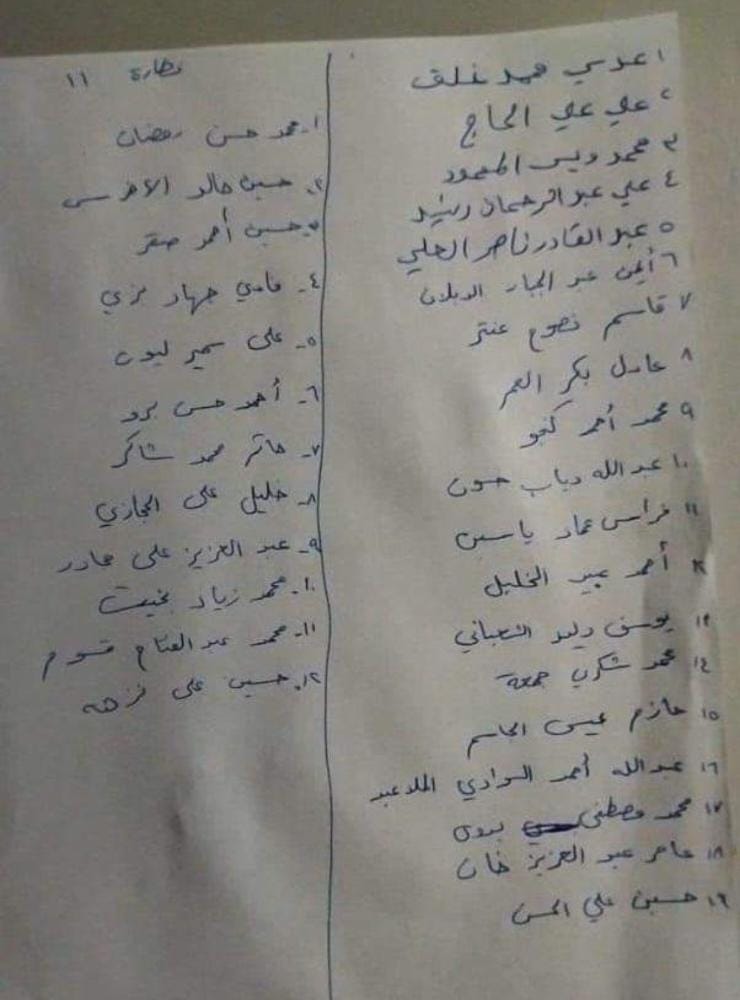 ١ عدسي حمد خلف
٢ علي علي الحاج
٣ محمد ويس المحمود
٤ علي عبد الرحمان رشيد
٥ عبد القادر ناصر العلي
٦ أيمن عبد الجبار الدبلان
٧ قاسم نصوح عنتر
٨ عادل بكر العمر
٩ محمد أحمد كنجو
١٠ عبدالله دياب حسون
١١ فراس عماد ياسين
١٢ أحمد عبيد الخليل
١٣ يوسف وليد الشعباني
١٤ محمد شكري جمعة
١٥ حازم عيسى الجاسم
١٦ عبدالله أحمد الوادي الملا عبد
١٧ محمد مصطفى بدوي
١٨ عامر عبد العزيز خان
١٩ حسين علي الحسن
نظارة ١١
١- محمد حسن رمضان
٢- حسين خالد الاخرس
٣- حسين أحمد صقر
٤- فادي جهاد غزي
٥- علي سمير ليون
٦- أحمد حسن برو
٧- حاتم محمد شاكر
٨- خليل علي الحجازي
٩- عبد العزيز علي
١٠- محمد زياد بخيت
١١- محمد عبد الفتاح قسوم
١٢- حسين علي نزهه